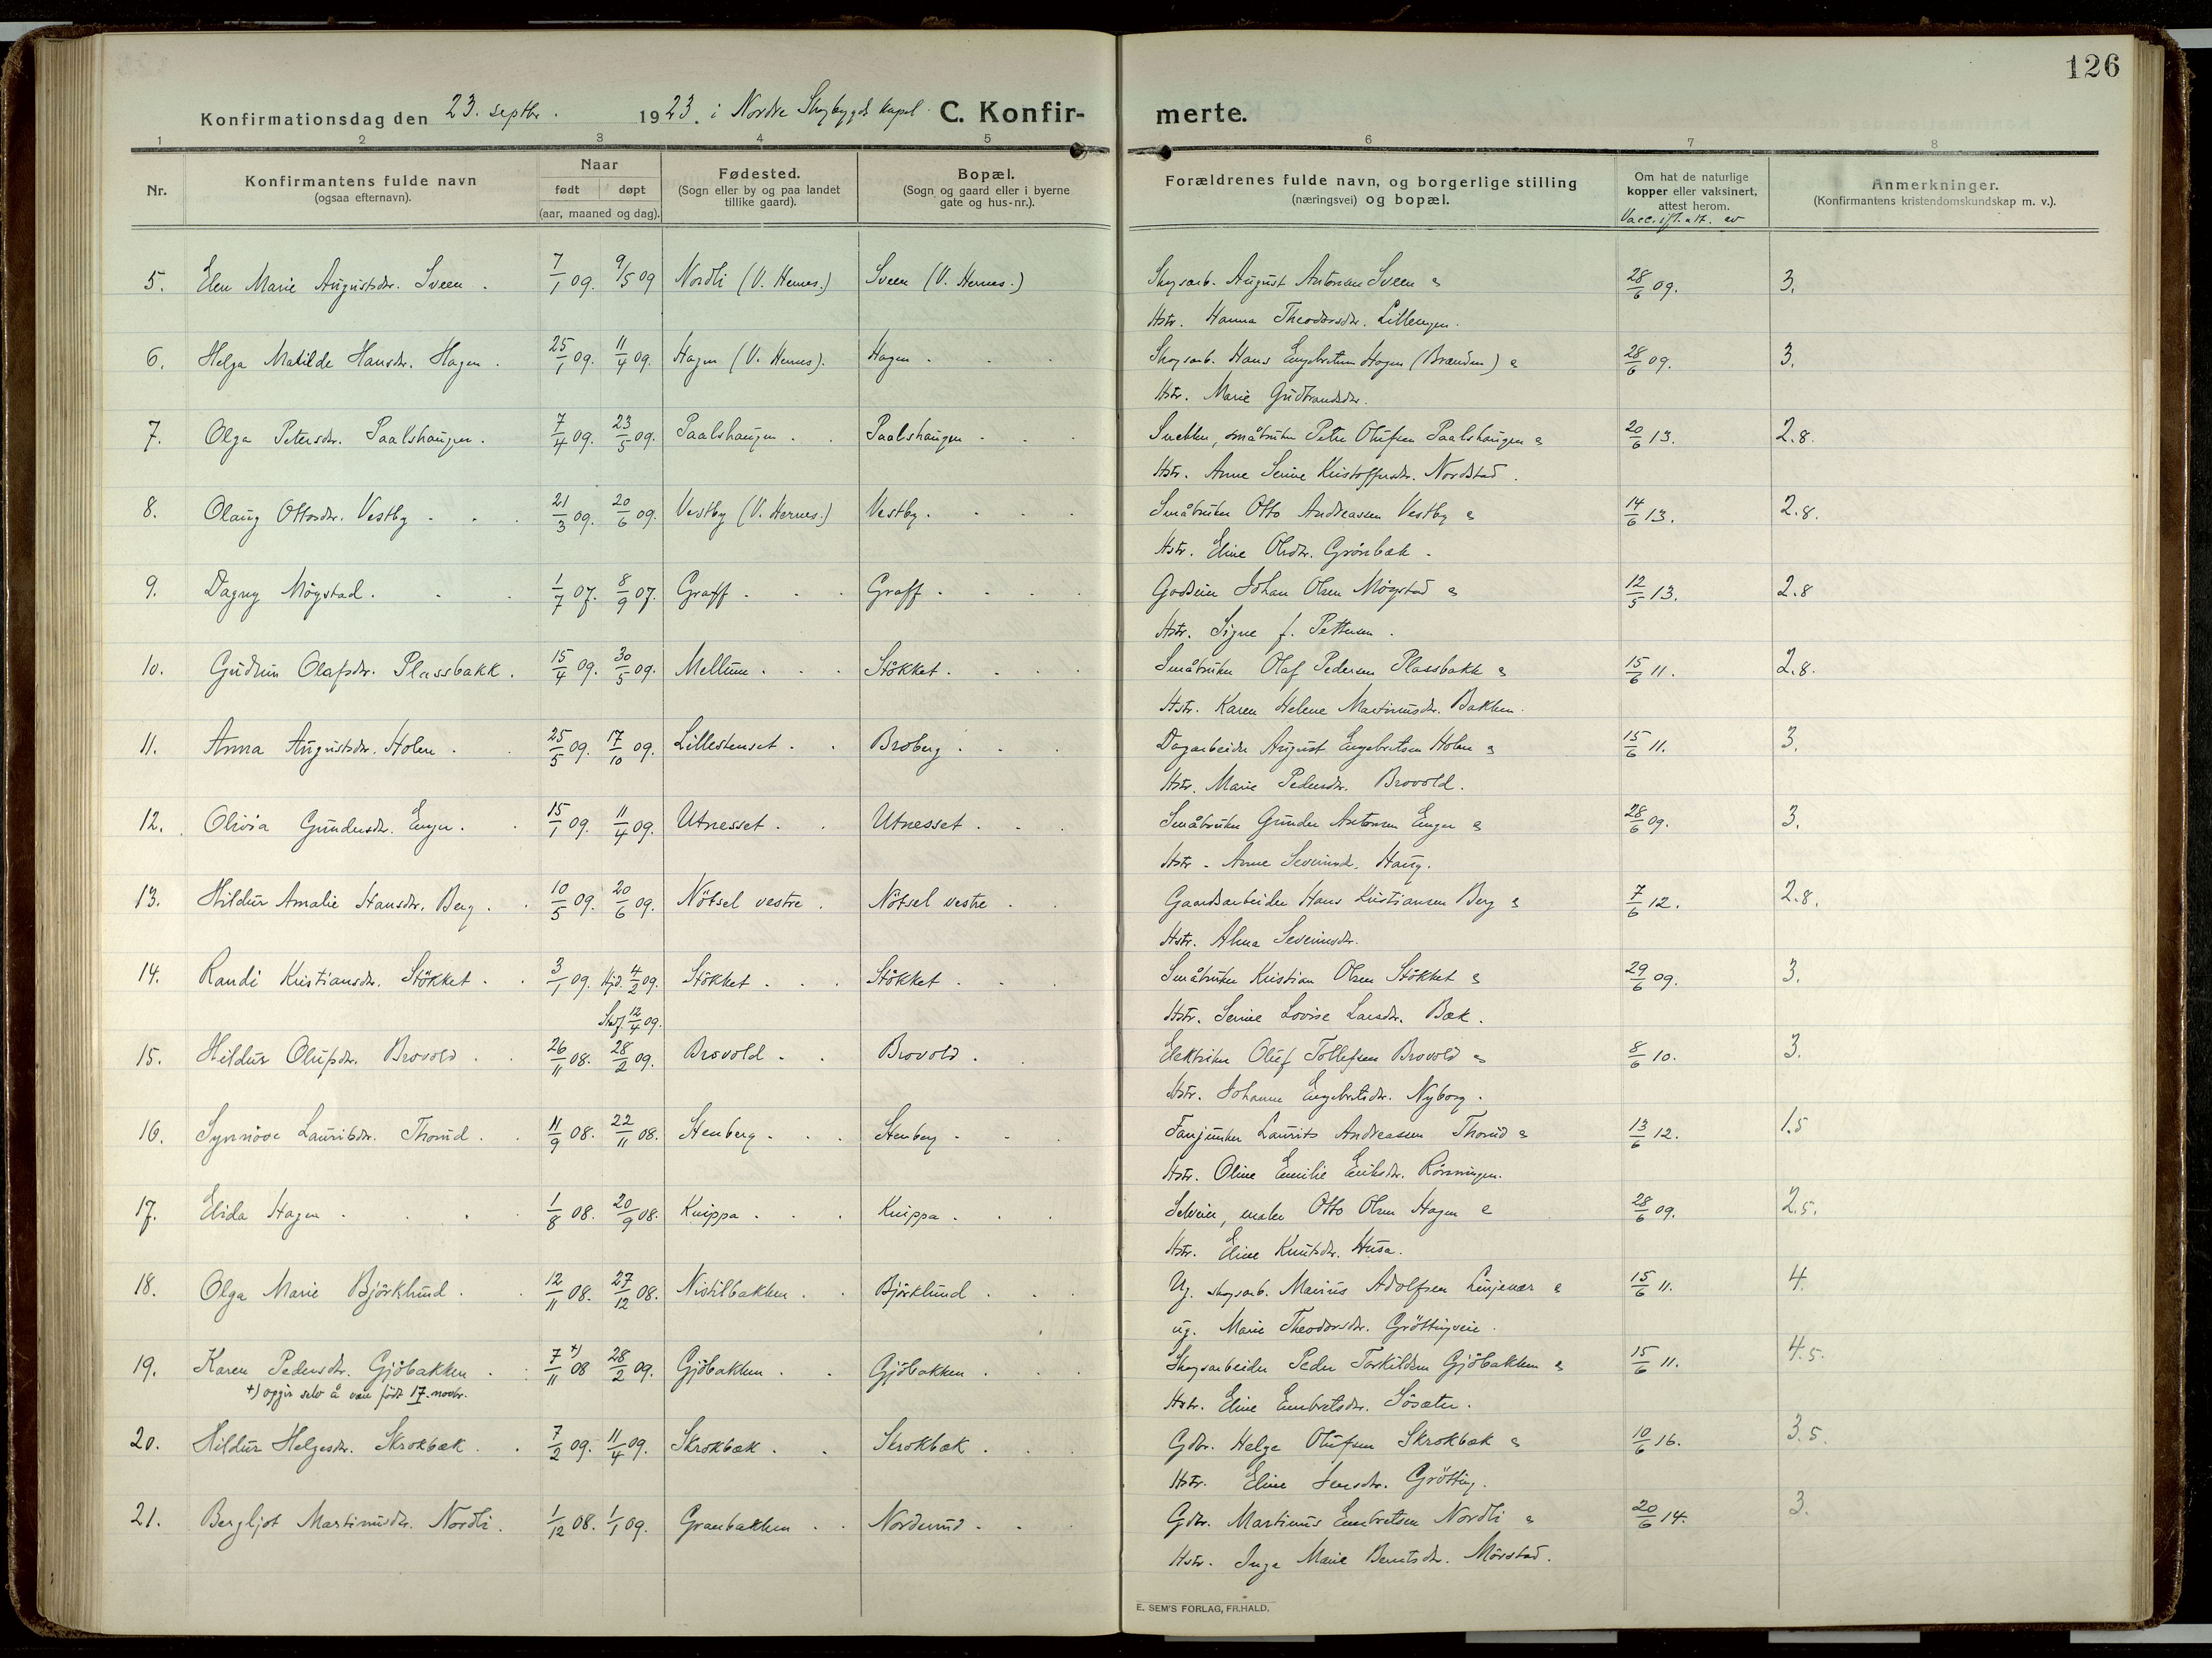 126
Konfirmationsdag den 23. septbr. 1923. i Nordre Skogbygds kapel C. Konfir- merte.
1 2 3 4 5 6 7 8
Nr.
Konfirmantens fulde navn
(ogsaa efternavn).
Naar
født døpt
(aar, maaned og dag).
Fødested.
(Sogn eller by og paa landet
tillike gaard).
Bopæl.
(Sogn og gaard eller i byerne
gate og hus-nr.).
Forældrenes fulde navn, og borgerlige stilling
(næringsvei) og bopæl.
Om hat de naturlige
kopper eller vaksinert,
attest herom.
Vacc. ifl. att. av
Anmerkninger.
(Konfirmantens kristendomskundskap m. v.).
5. Elen Marie Augustsdtr. Sveen. 7/1 09. 9/5 09 Nordli (V. Hernes.) Sveen (V. Hernes.) Skogsarb. August Antonsen Sveen & 28/6 09. 3.
Hstr. Hanna Theodorsdtr. Lillengen.
6. Helga Matilde Hansdtr. Hagen. 25/1 09. 11/4 09. Hagen (V. Hernes). Hagen. Skogsarb. Hans Engebretsen Hagen (Brænden) & 28/6 09. 3.
Hstr. Marie Gudbrandsdtr.
7. Olga Petersdtr. Paalshaugen. 7/4 09. 23/5 09. Paalshaugen. Paalshaugen. Snekker, småbruker Peter Olufsen Paalshaugen & 20/6 13. 2.8.
Hstr. Anne Serine Kristoffersdtr. Nordstad.
8. Olaug Ottosdtr. Vestby. 21/3 09. 20/6 09. Vestby (V. Hernes.) Vestby. Småbruker Otto Andreassen Vestby & 14/6 13. 2.8.
Hstr. Eline Olsdtr. Grönbæk.
9. Dagny Mögstad. 1/7 07. 8/9 07. Graff. Graff. Godseier Johan Olsen Mögstad & 12/5 13. 2.8
Hstr. Signe f. Pettersen.
10. Gudrun Olafsdtr. Plassbakk. 15/4 09. 30/5 09. Mellum. Stökket. Småbruker Olaf Pedersen Plassbakk & 15/6 11. 2.8.
Hstr. Karen Helene Martinusdtr. Bakken.
11. Anna Augustsdtr. Holen. 25/5 09. 17/10 09. Lillestenset. Broberg. Dagarbeider August Engebretsen Holen & 15/6 11. 3.
Hstr. Marie Pedersdtr. Brovold.
12. Olivia Gundersdtr. Enger. 15/1 09. 11/4 09. Utnesset. Utnesset. Småbruker Gunder Antonsen Enger & 28/6 09. 3.
Hstr. Anne Severinsd. Haug.
13. Hildur Amalie Hansdtr. Berg. 10/5 09. 20/6 09. Nötsel vestre. Nötsel vestre. Gaardsarbeider Hans Kristiansen Berg & 7/6 12. 2.8.
Hstr. Alma Severinsdtr.
14. Randi Kristiansdtr. Stökket. 3/1 09. Hjd. 4/2 09. Stökket. Stökket. Småbruker Kristian Olsen Stökket & 29/6 09. 3.
Stadf. 12/4 09. Hstr. Serine Lovise Larsdtr. Bæk.
15. Hildur Olufsdtr. Brovold. 26/11 08. 28/2 09. Brovold. Brovold. Elektriker Oluf Tollefsen Brovold & 8/6 10. 3.
Hstr. Johanne Engebretsdtr. Nyborg.
16. Synnöve Lauritsdtr. Thorud. 11/9 08. 22/11 08. Stenberg. Stenberg. Fanjunker Laurits Andreassen Thorud & 13/6 12. 1.5
Hstr. Oline Emilie Eriksdtr. Rönningen.
17. Elida Hagen. 1/8 08. 20/9 08. Knippa. Knippa. Selveier, maler Otto Olsen Hagen & 28/6 09. 2.5.
Hstr. Eline Knutsdtr. Husa.
18. Olga Marie Björklund. 12/11 08. 27/12 08. Nistilbakken. Björklund. Ug. skogsarb. Marius Adolfsen Linjenær & 15/6 11. 4.
ug. Marie Theodorsdtr. Gröttingveie.
19. Karen Pedersdtr. Gjöbakken. 7/11 +) 08 28/2 09. Gjöbakken. Gjöbakken. Skogsarbeider Peder Torkildsen Gjöbakken & 15/6 11. 4.5.
+) opgir selv å være født 17. novbr. Hstr. Eline Embretsdtr. Sösæter.
20. Hildur Helgesdtr. Skrokbæk. 7/2 09. 11/4 09. Skrokbæk. Skrokbæk. Gdbr. Helge Olufsen Skrokbæk & 10/6 16. 3.5.
Hstr. Eline Jensdtr. Grötting.
21. Bergljot Martinusdtr. Nordli. 1/12 08. 1/1 09. Granbakken. Norderud. Gdbr. Martinus Embretsen Nordli & 20/6 14. 3.
Hstr. Inga Marie Berntsdtr. Mörstad.
E. SEM'S FORLAG, FR.HALD.